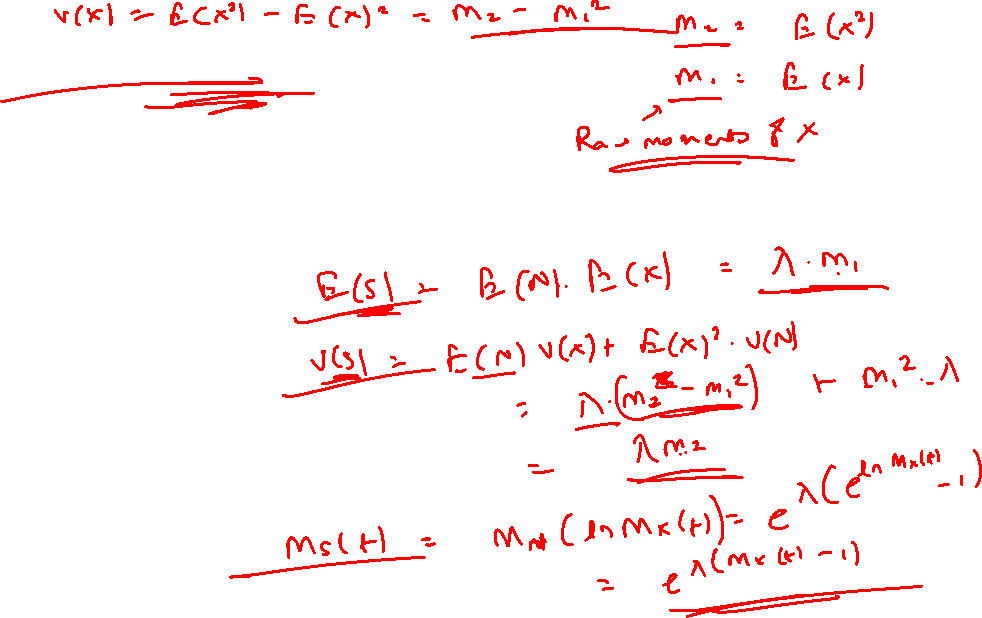 V(X) = E(X²) - E(X)² = m₂ - m₁²
m₂ = E(X²)
m₁ = E(X)
Raw moments of X
E(S) = E(N). E(X) = λ.m₁
V(S) = E(N) V(X) + E(X)². V(N)
= λ.(m₂ - m₁²) + m₁².λ
= λm₂
Ms(t) = MN (ln Mx(t)) = e^λ(e^ln Mx(t) - 1)
= e^λ(Mx(t) - 1)